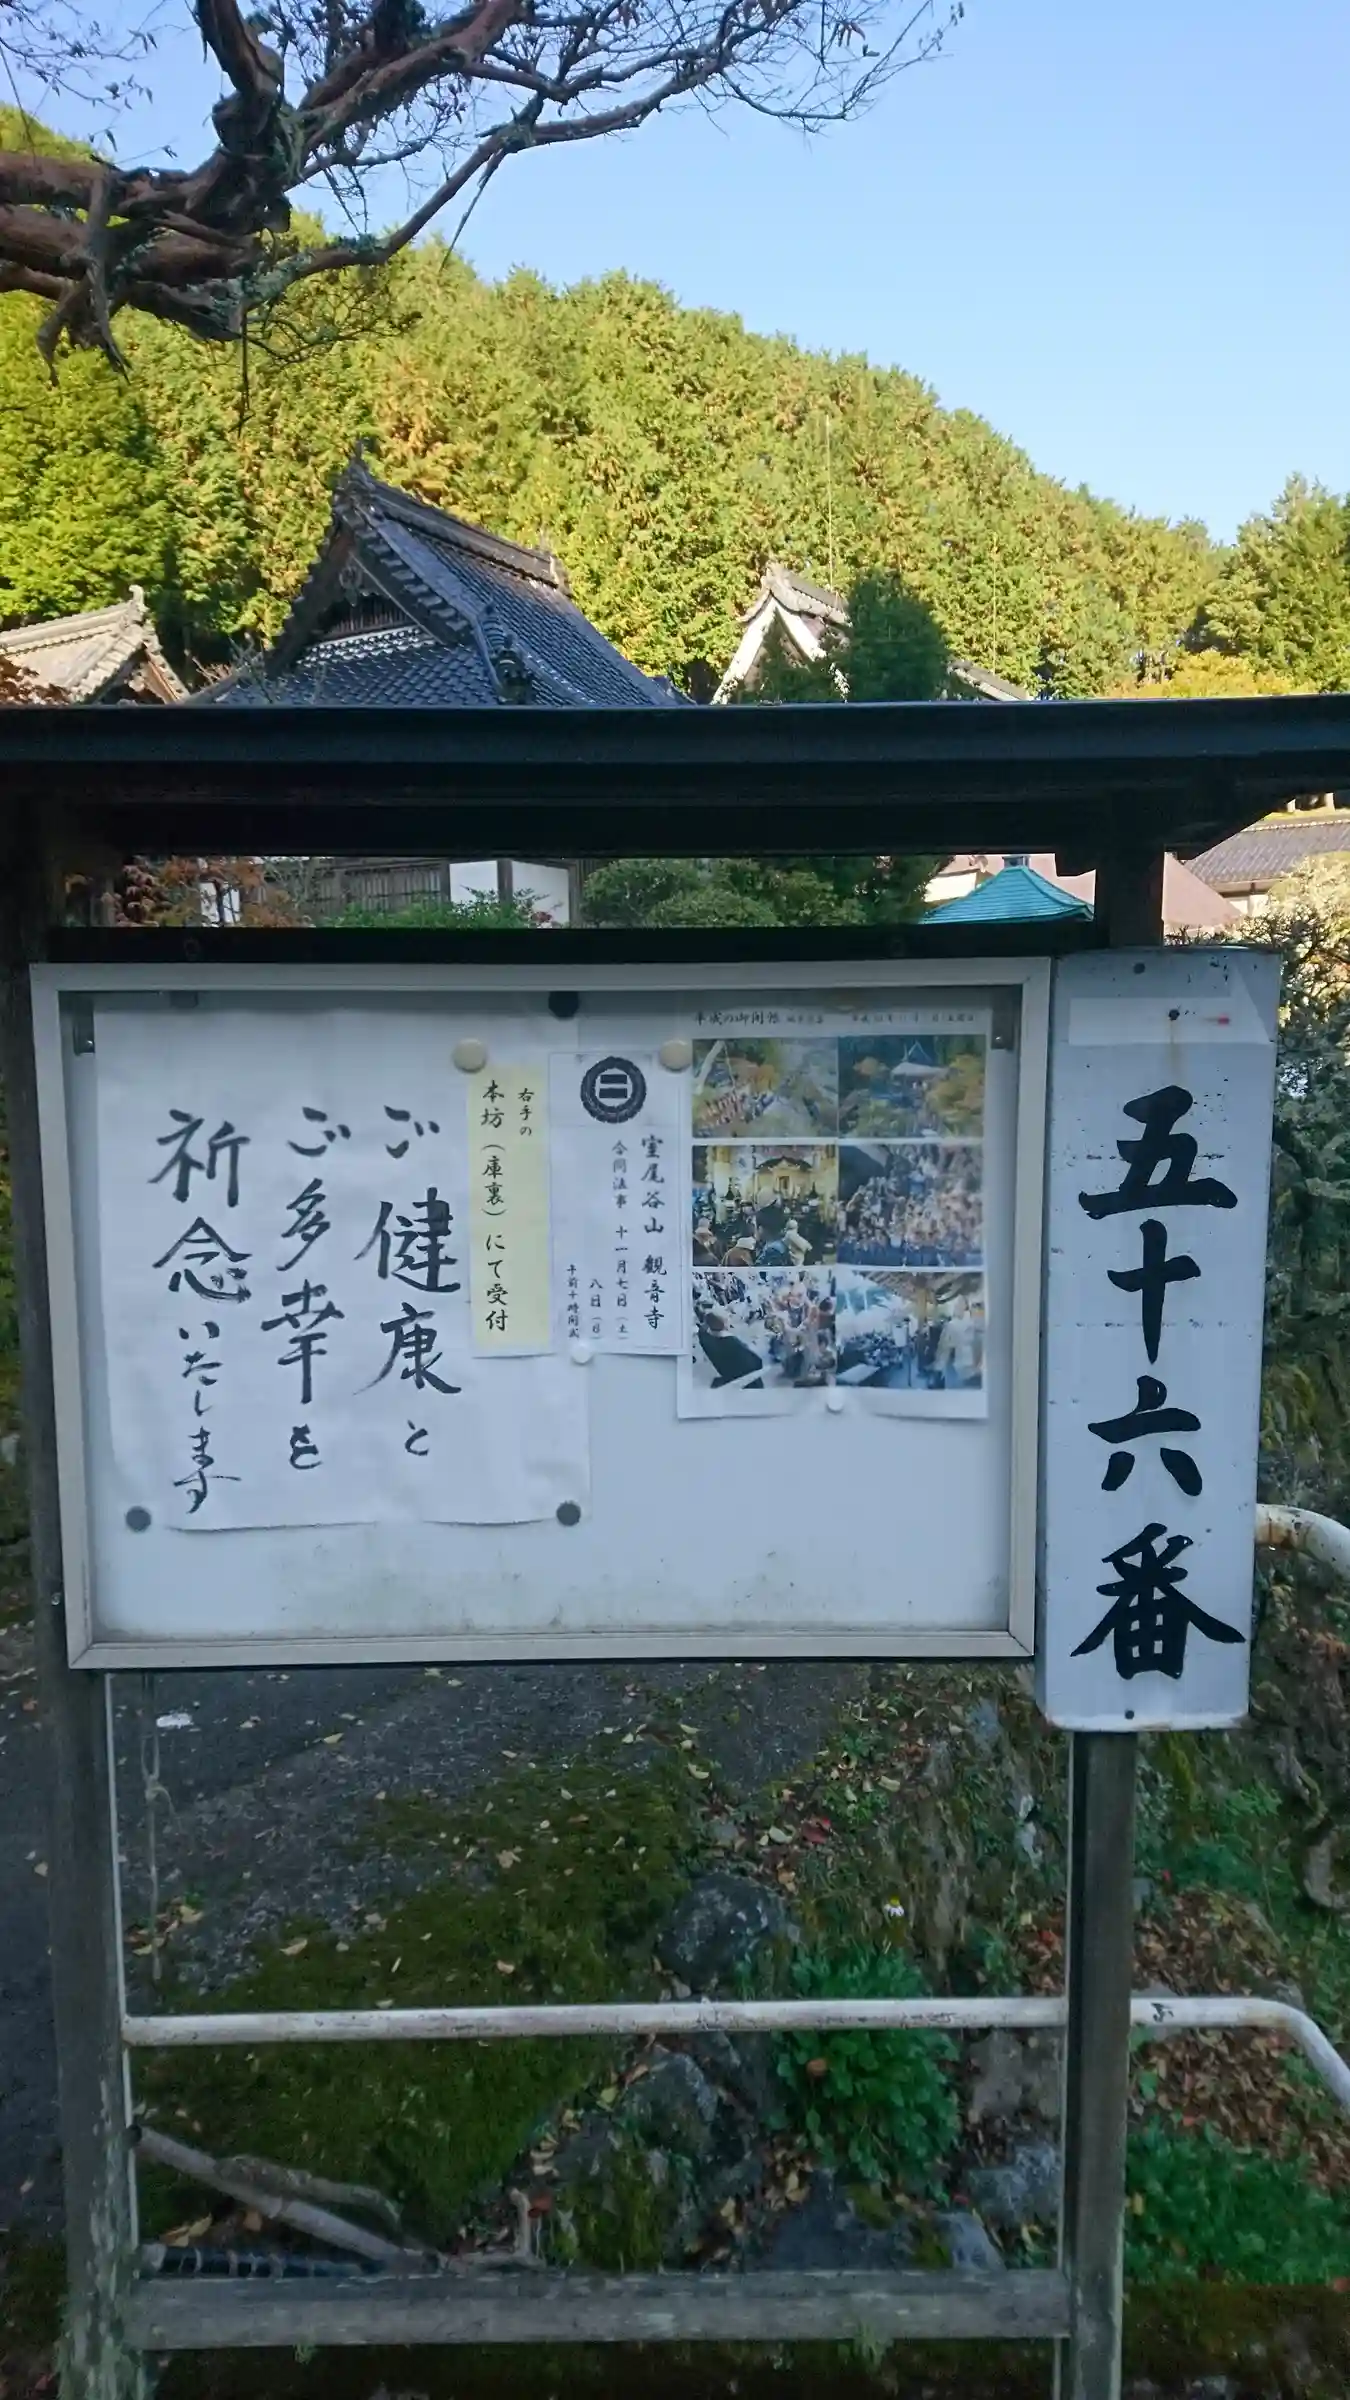 五十六番
平成の御開帳
室尾谷山 観音寺
合同法事 十一月七日（土）
八日（日）
午前十時開式
右手の
本坊（庫裏）にて受付
ご健康と
ご多幸を
祈念いたします